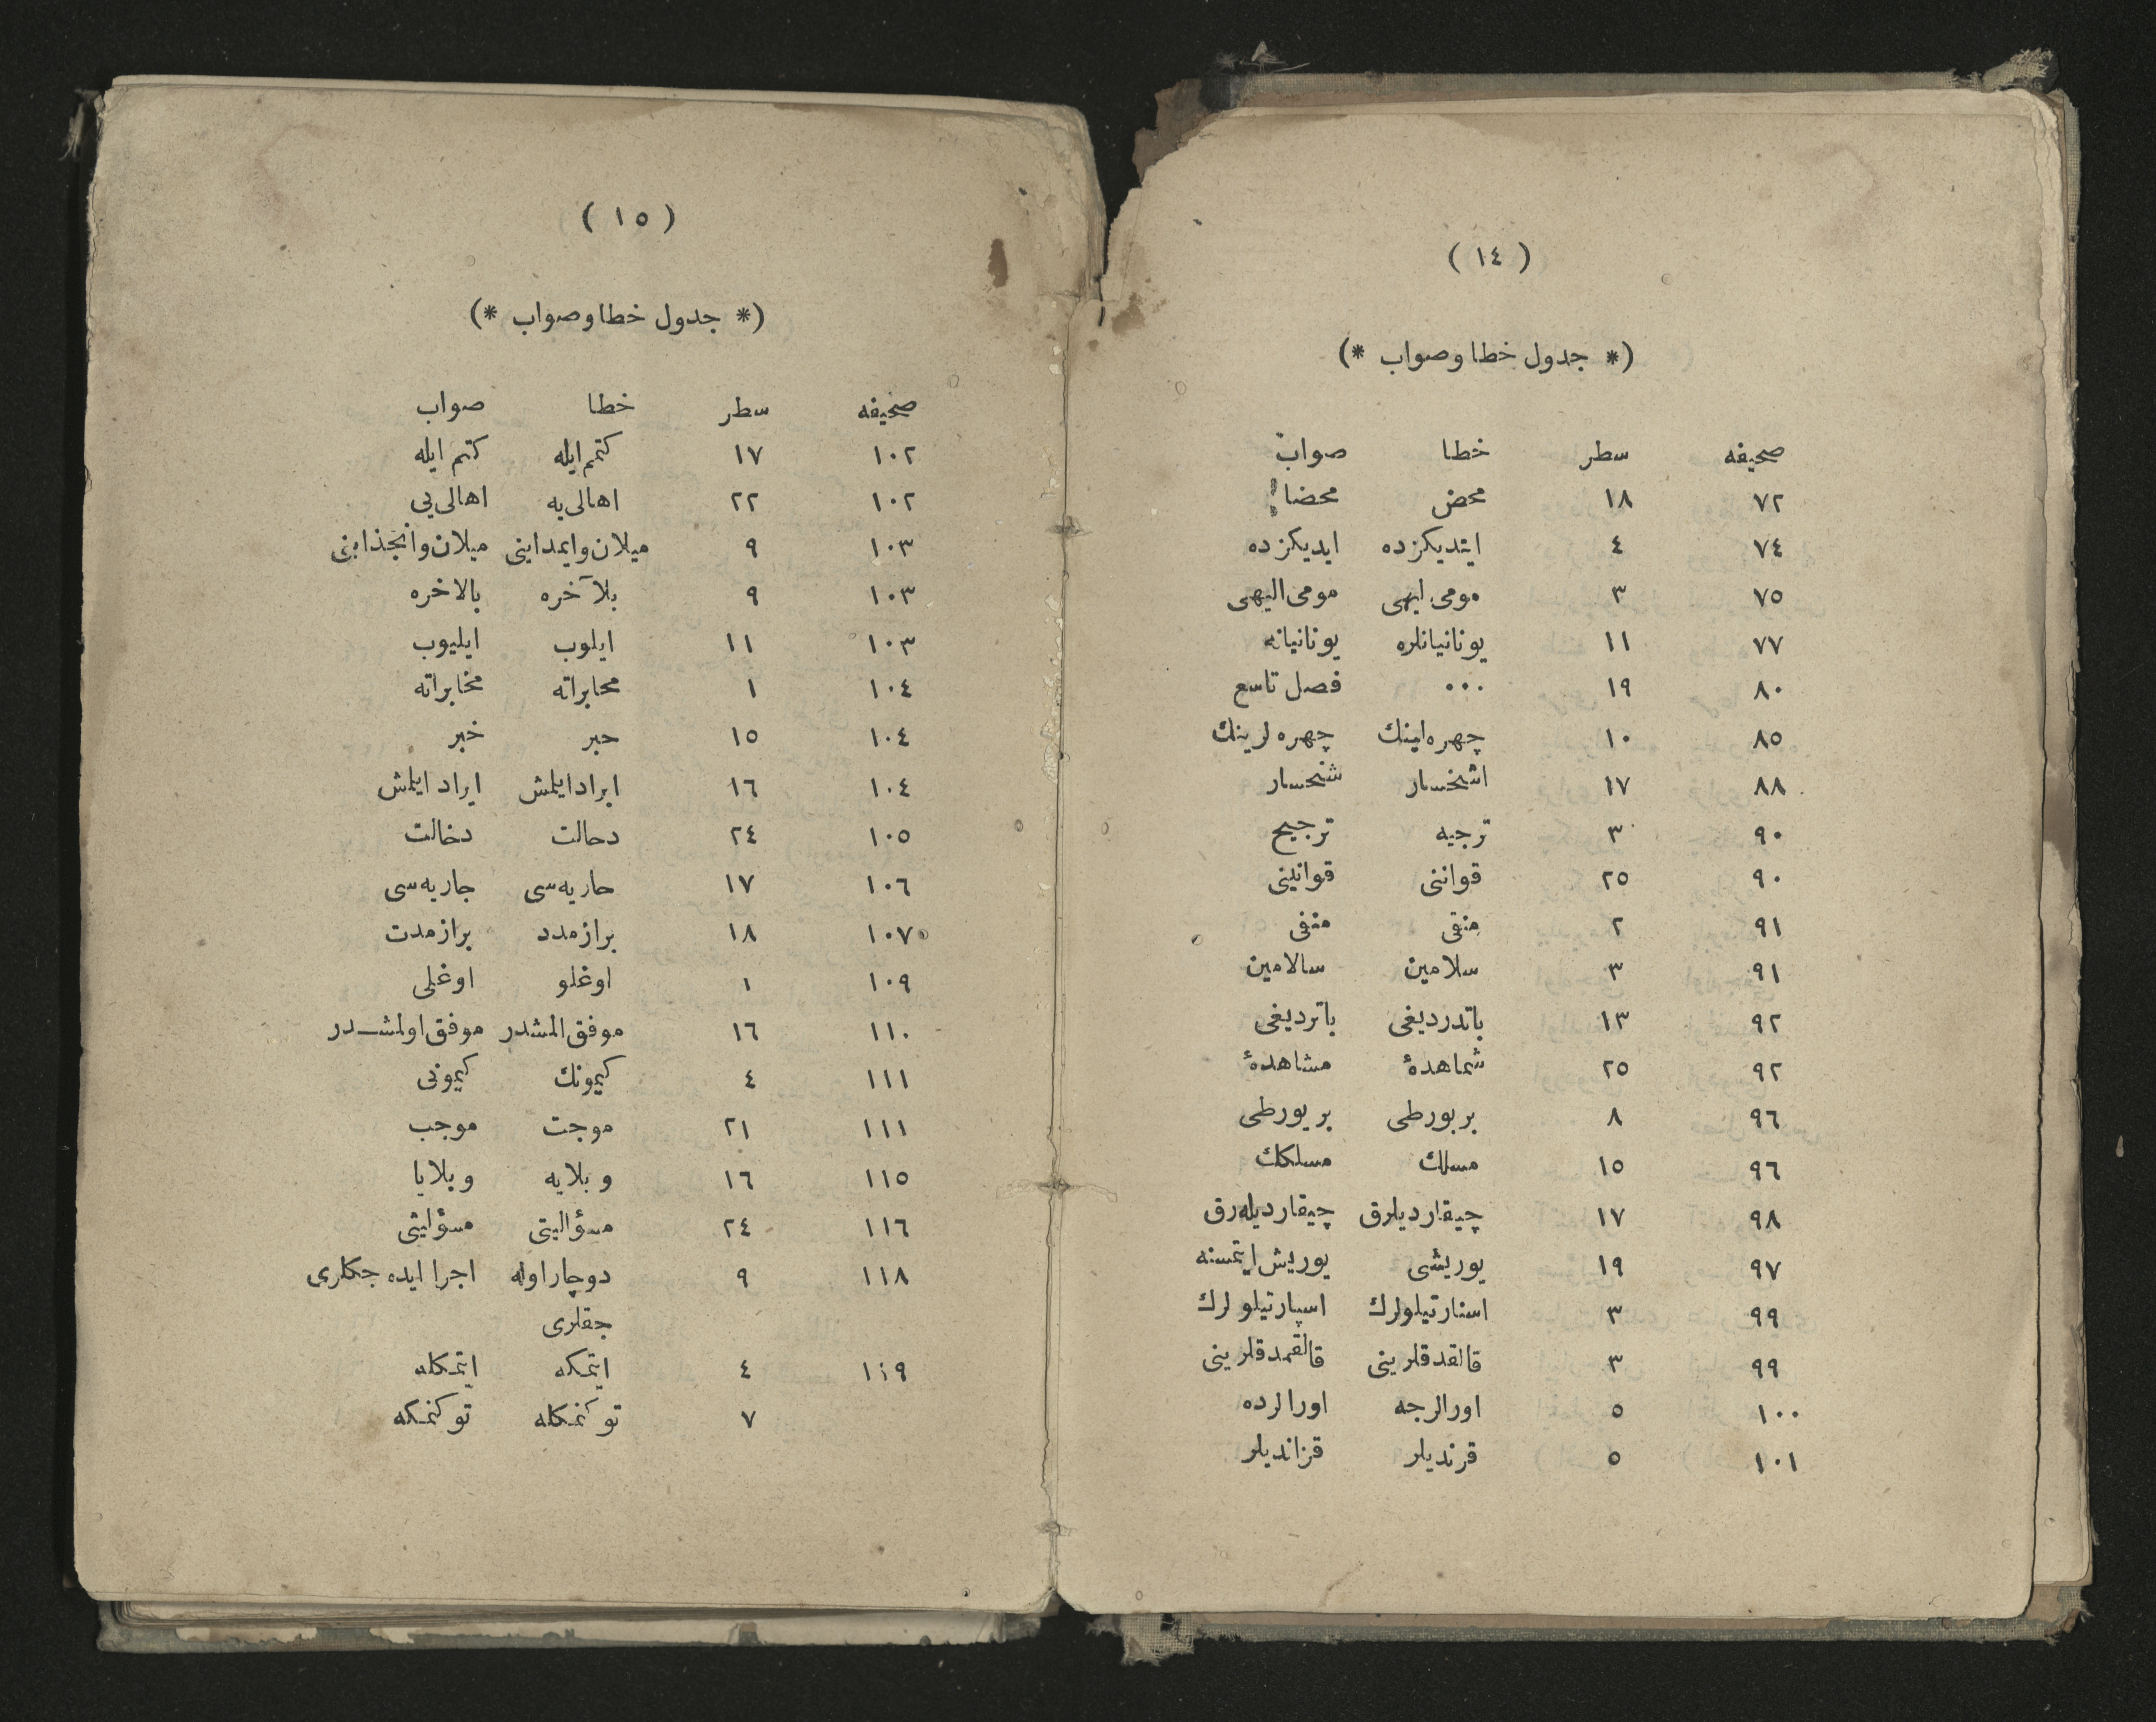 ( ١٤ )
(* جدول خطا وصواب *)
صحيفه سطر خطا صواب
٧٢ ١٨ محض محضا
٧٤ ٤ ايتديكزده ايديكزده
٧٥ ٣ مومى ايهى مومى اليهى
٧٧ ١١ يونانيانلره يونانيانه
٨٠ ١٩ ٠٠٠ فصل تاسع
٨٥ ١٠ چهره لينك چهره لرينك
٨٨ ١٧ اشخسار شخسار
٩٠ ٣ ترجيه ترجيح
٩٠ ٢٥ قواننى قوانينى
٩١ ٢ منقى منفى
٩١ ٣ سلامين سالامين
٩٢ ١٣ باتدرديغى باترديغى
٩٢ ٢٥ شماهدۀ مشاهدۀ
٩٦ ٨ بربورطى بريورطى
٩٦ ١٥ مسلك مسلكك
٩٨ ١٧ چيقارديلرق چيقارديله رق
٩٧ ١٩ يوريشى يوريش ايتمسنه
٩٩ ٣ اسنارتيلولرك اسپارتيلولرك
٩٩ ٣ قالقدقلرينى قالقمدقلرينى
١٠٠ ٥ اورالرجه اورالرده
١٠١ ٥ قرنديلر قزانديلر
( ١٥ )
(* جدول خطا وصواب *)
صحيفه سطر خطا صواب
١٠٢ ١٧ كتمم ايله كتم ايله
١٠٢ ٢٢ اهالى يه اهالى يى
١٠٣ ٩ ميلان وايمدابنى ميلان وانجذابنى
١٠٣ ٩ بلاآخره بالاخره
١٠٣ ١١ ايلوب ايليوب
١٠٤ ١ محابراته مخابراته
١٠٤ ١٥ حبر خبر
١٠٤ ١٦ ابرادايلمش ايراد ايلمش
١٠٥ ٢٤ دحالت دخالت
١٠٦ ١٧ حاريه سى جاريه سى
١٠٧ ١٨ برازمدد برازمدت
١٠٩ ١ اوغلو اوغلى
١١٠ ١٦ موفق المشدر موفق اولمشدر
١١١ ٤ كيمونك كيمونى
١١١ ٢١ موجت موجب
١١٥ ١٦ وبلايه وبلايا
١١٦ ٢٤ مسؤاليتى مسؤليتى
١١٨ ٩ دوچار اوله اجرا ايده جكلرى
جقلرى
١١٩ ٤ ايتمكه ايتمكله
٧ توكنمكله توكنمكه